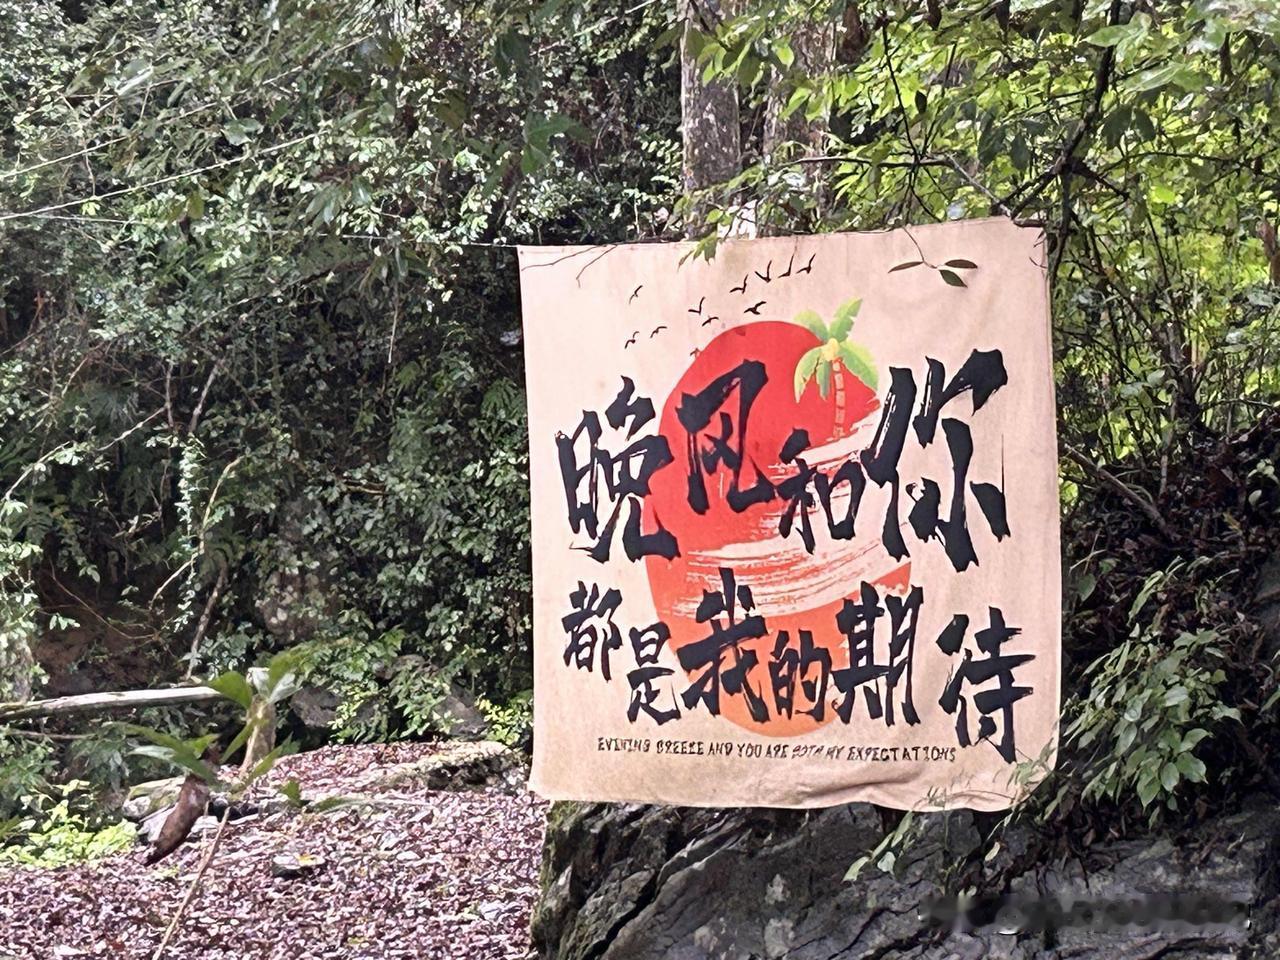 晚风和你
都是我的期待
EVENING BREEZE AND YOU ARE BOTH MY EXPECTATIONS